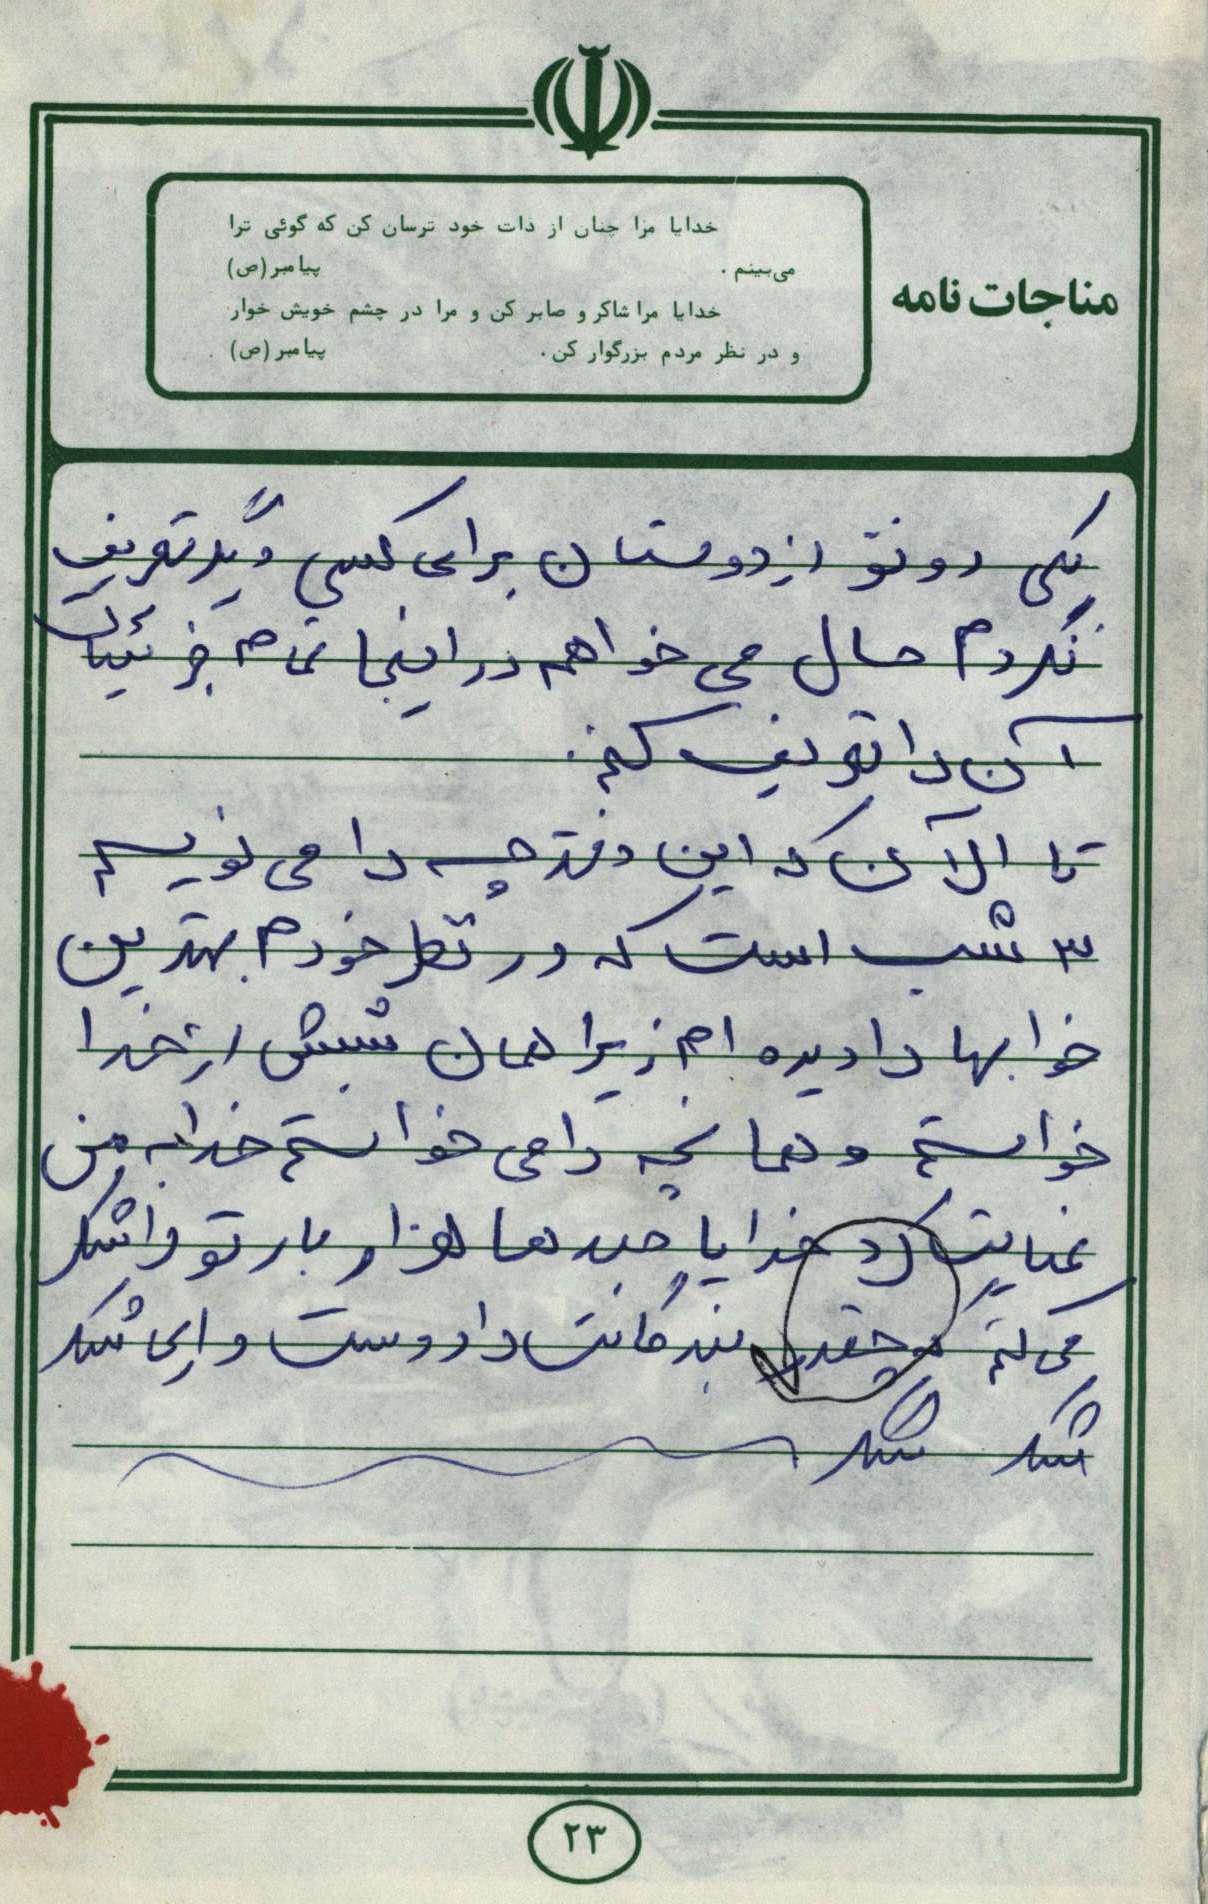 خدایا مرا چنان از ذات خود ترسان کن که گوئی ترا
می‌بینم . پیامبر (ص)
خدایا مرا شاکر و صابر کن و مرا در چشم خویش خوار
و در نظر مردم بزرگوار کن . پیامبر (ص)
مناجات نامه
یکی دو نفر از دوستان برای کسی دیگر تعریف
نکردم حال می خواهم در اینجا تمام جزئیات
آن را تعریف کنم .
تا الآن که این دفترچه را می نویسم
۳ شب است که در نظر خودم بهترین
خوابها را دیده ام زیرا همان شبش از خدا
خواستم و همانچه را می خواستم خدا به من
عنایت کرد خدایا صدها هزار بار تو را شکر
می کنم که چقدر بندگانت را دوست داری شکر
شکر شکر
۲۳